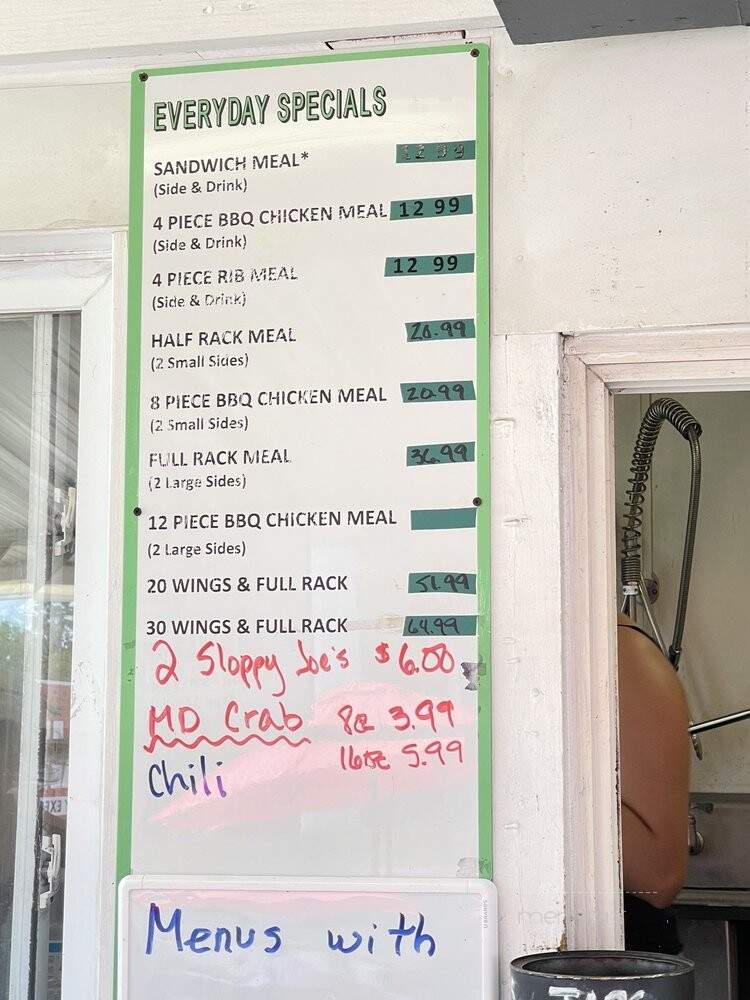 EVERYDAY SPECIALS
SANDWICH MEAL* 12 99
(Side & Drink)
4 PIECE BBQ CHICKEN MEAL 12 99
(Side & Drink)
4 PIECE RIB MEAL 12 99
(Side & Drink)
HALF RACK MEAL 20.99
(2 Small Sides)
8 PIECE BBQ CHICKEN MEAL 20.99
(2 Small Sides)
FULL RACK MEAL 36.99
(2 Large Sides)
12 PIECE BBQ CHICKEN MEAL
(2 Large Sides)
20 WINGS & FULL RACK 51.99
30 WINGS & FULL RACK 64.99
2 Sloppy Joe's $6.00
MD Crab 8oz 3.99
16oz 5.99
Chili
Menus with